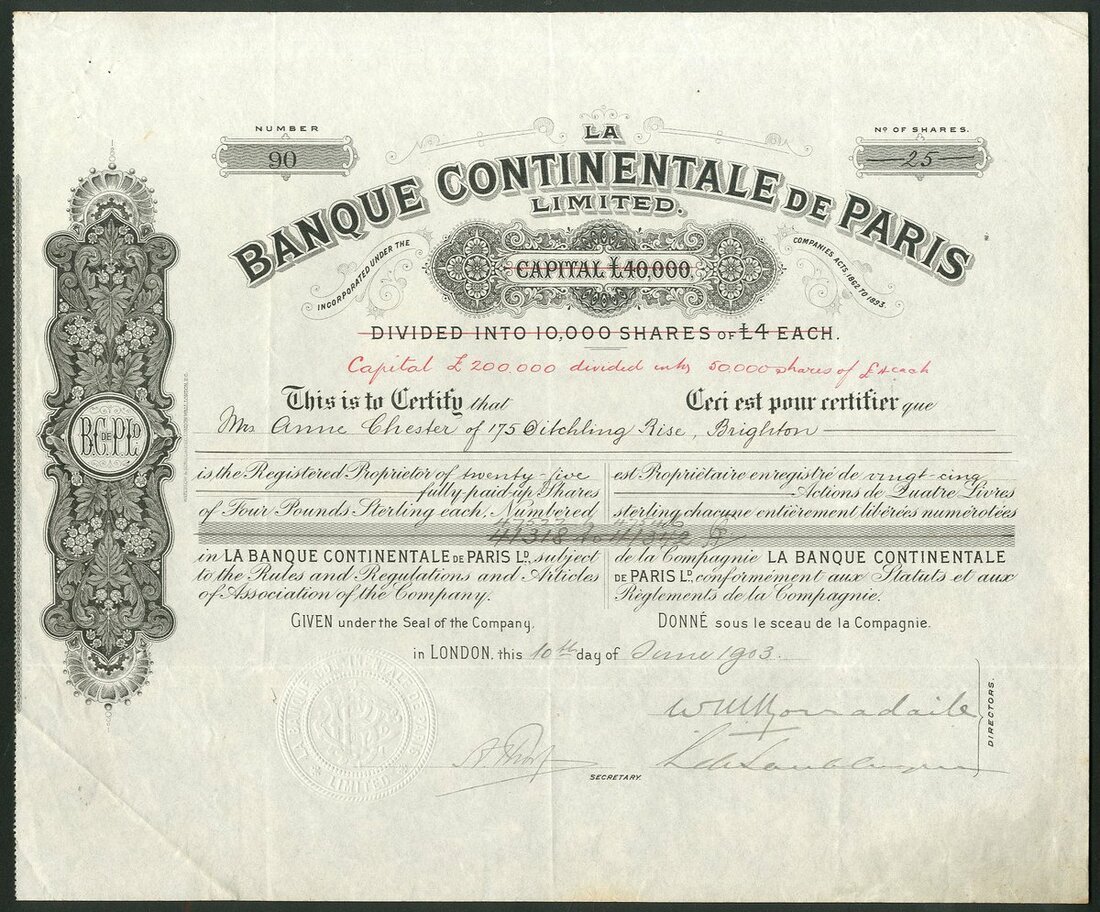 NUMBER
90
Nº OF SHARES.
25
LA
BANQUE CONTINENTALE DE PARIS
LIMITED.
INCORPORATED UNDER THE
COMPANIES ACTS 1862 TO 1893.
CAPITAL £40,000
DIVIDED INTO 10,000 SHARES OF £4 EACH.
Capital £200,000 divided into 50,000 shares of £4 each
This is to Certify that
Ceci est pour certifier que
Mrs Anne Chester of 175 Ditchling Rise, Brighton
is the Registered Proprietor of twenty-five
fully paid up Shares
of Four Pounds Sterling each, Numbered
est Propriétaire enregistré de vingt-cinq
Actions de Quatre Livres
sterling chacune entièrement libérées numérotées
41318 to 41342
in LA BANQUE CONTINENTALE DE PARIS LD, subject
to the Rules and Regulations and Articles
of Association of the Company.
de la Compagnie LA BANQUE CONTINENTALE
DE PARIS LD, conformement aux Statuts et aux
Règlements de la Compagnie.
GIVEN under the Seal of the Company,
DONNÉ sous le sceau de la Compagnie.
in LONDON, this 10th day of June 1903.
DIRECTORS.
SECRETARY.
B.C. DE P. LTD
LA BANQUE CONTINENTALE DE PARIS
LIMITED